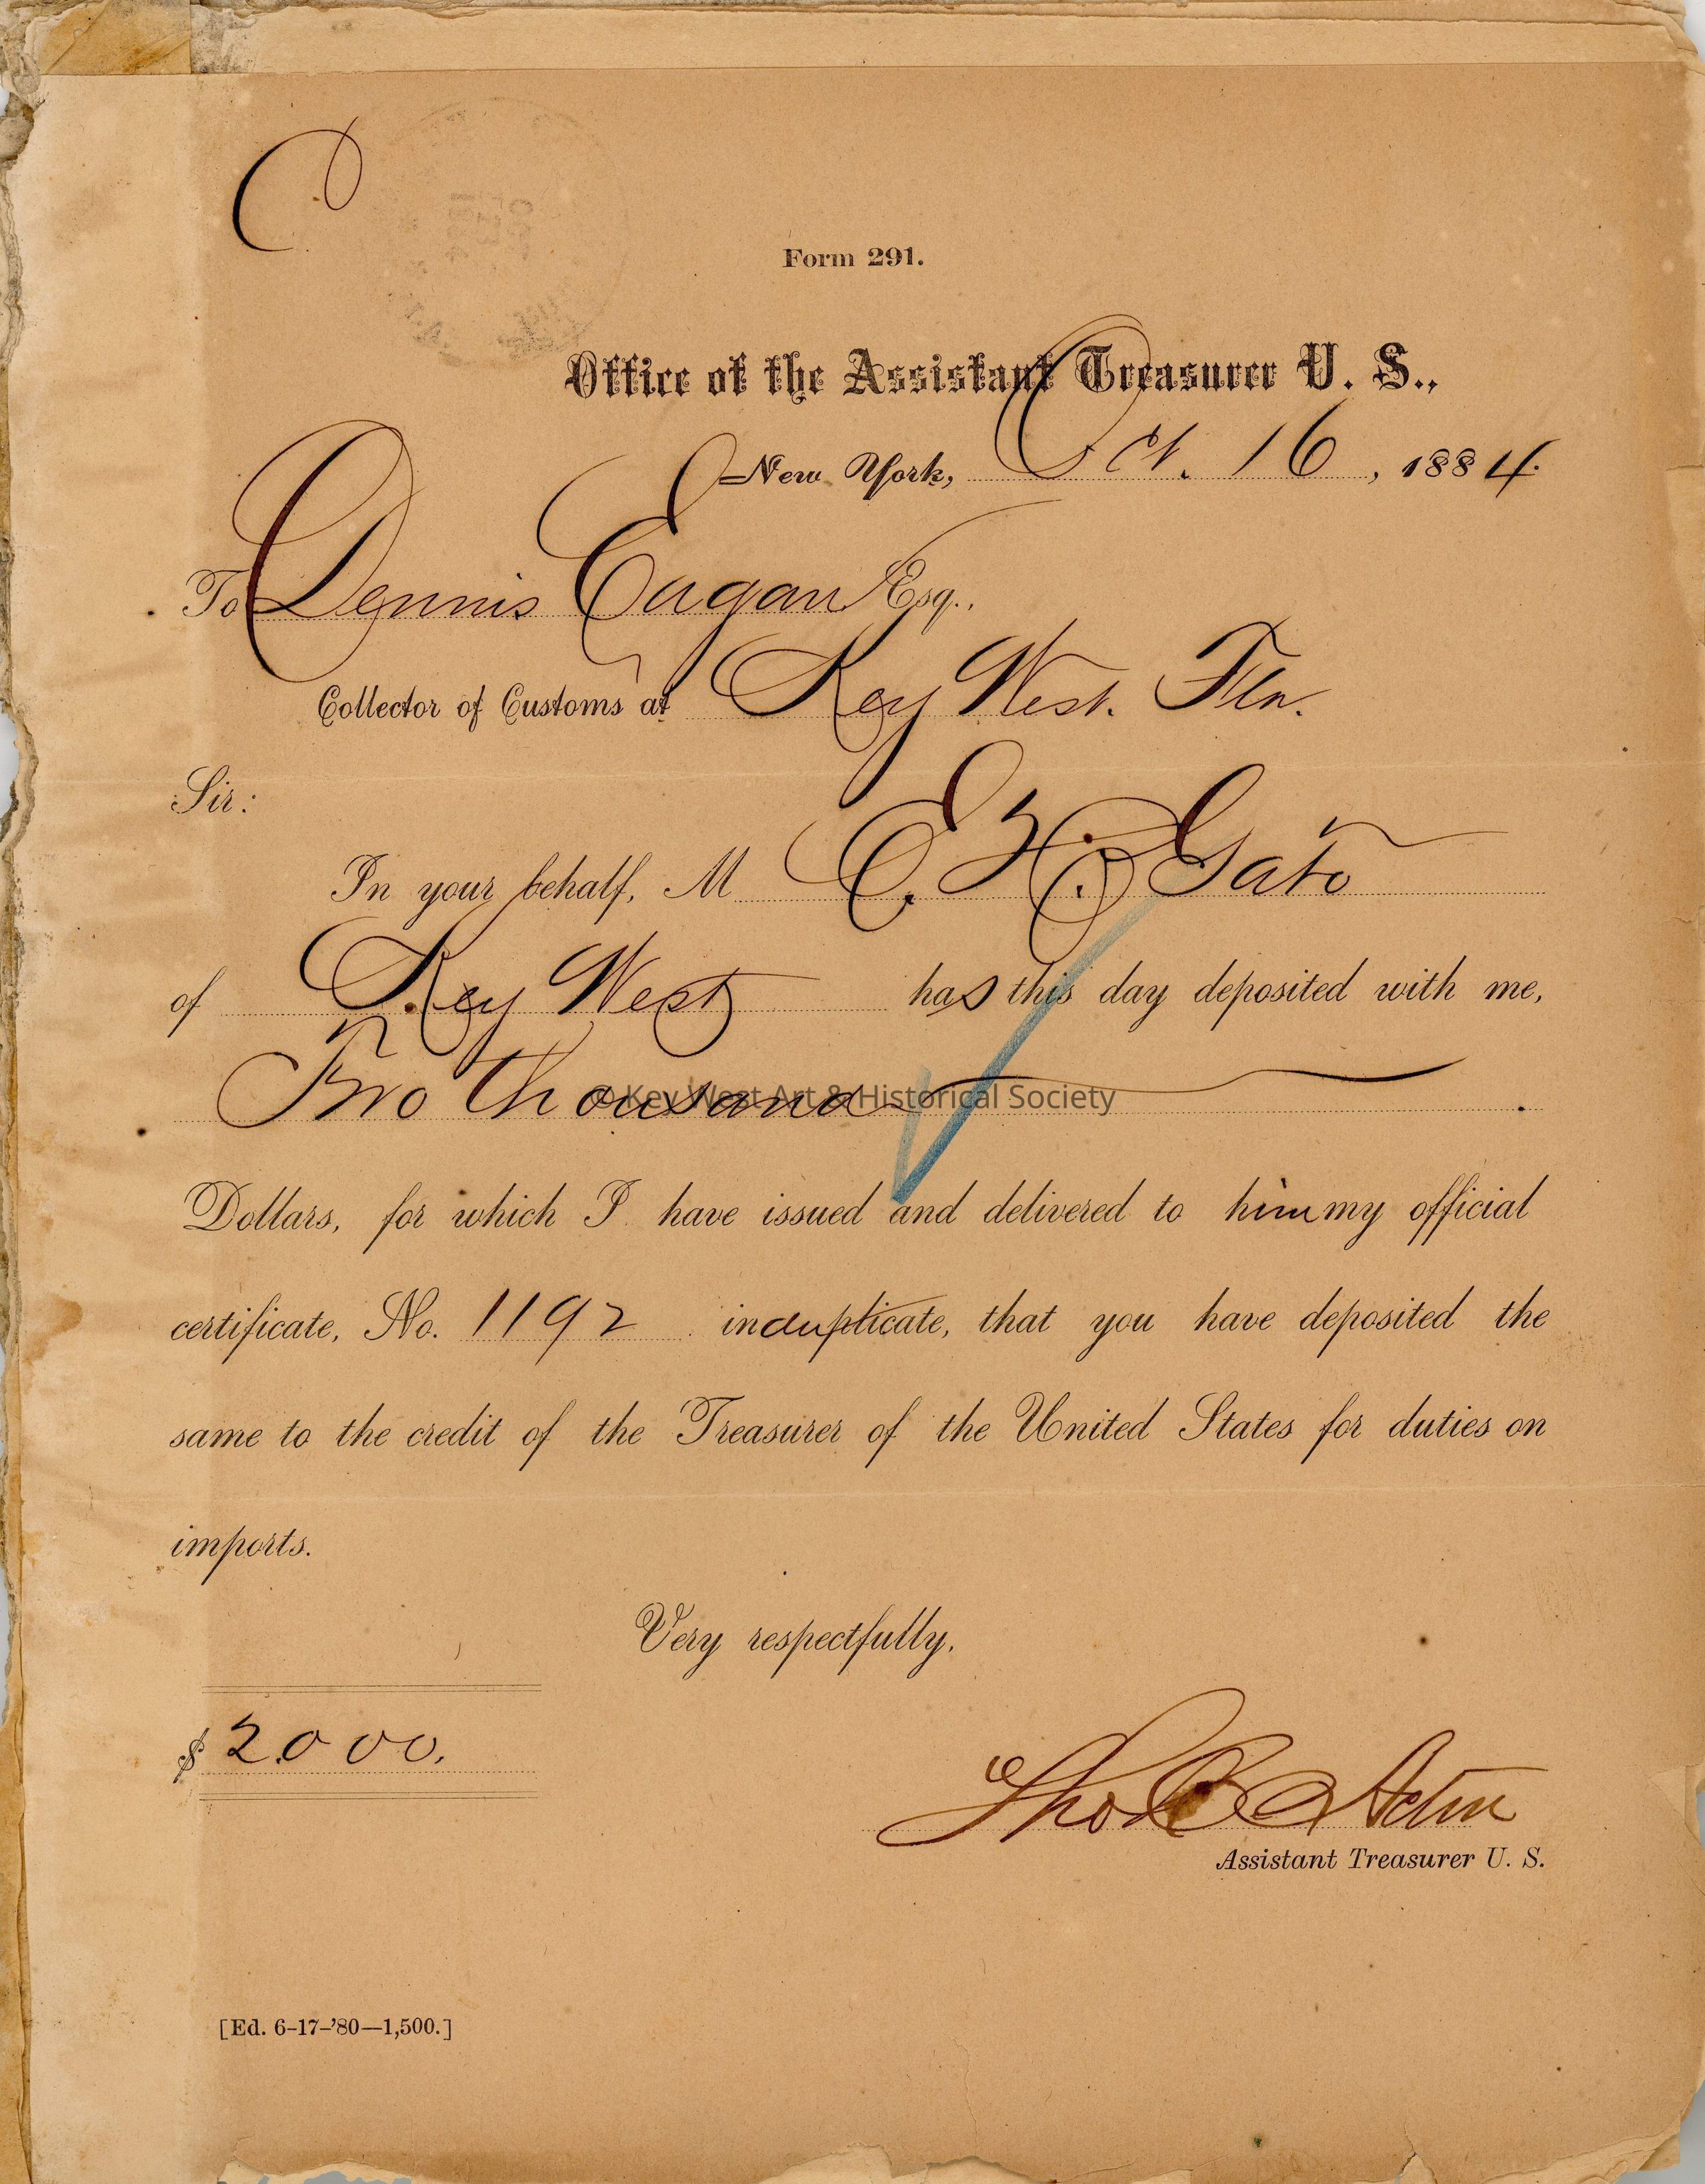 C
Form 291.
Office of the Assistant Treasurer U. S.,
New York, Oct. 16, 1884.
To Dennis Eagan Esq.,
Collector of Customs at Key West. Fla.
Sir:
In your behalf, M E. H. Gato
of Key West has this day deposited with me,
Two Thousand
© Key West Art & Historical Society
Dollars, for which I have issued and delivered to him my official
certificate, No. 1192 in duplicate, that you have deposited the
same to the credit of the Treasurer of the United States for duties on
imports.
Very respectfully,
$ 2000.
Thos C Acton
Assistant Treasurer U. S.
[Ed. 6-17-'80—1,500.]